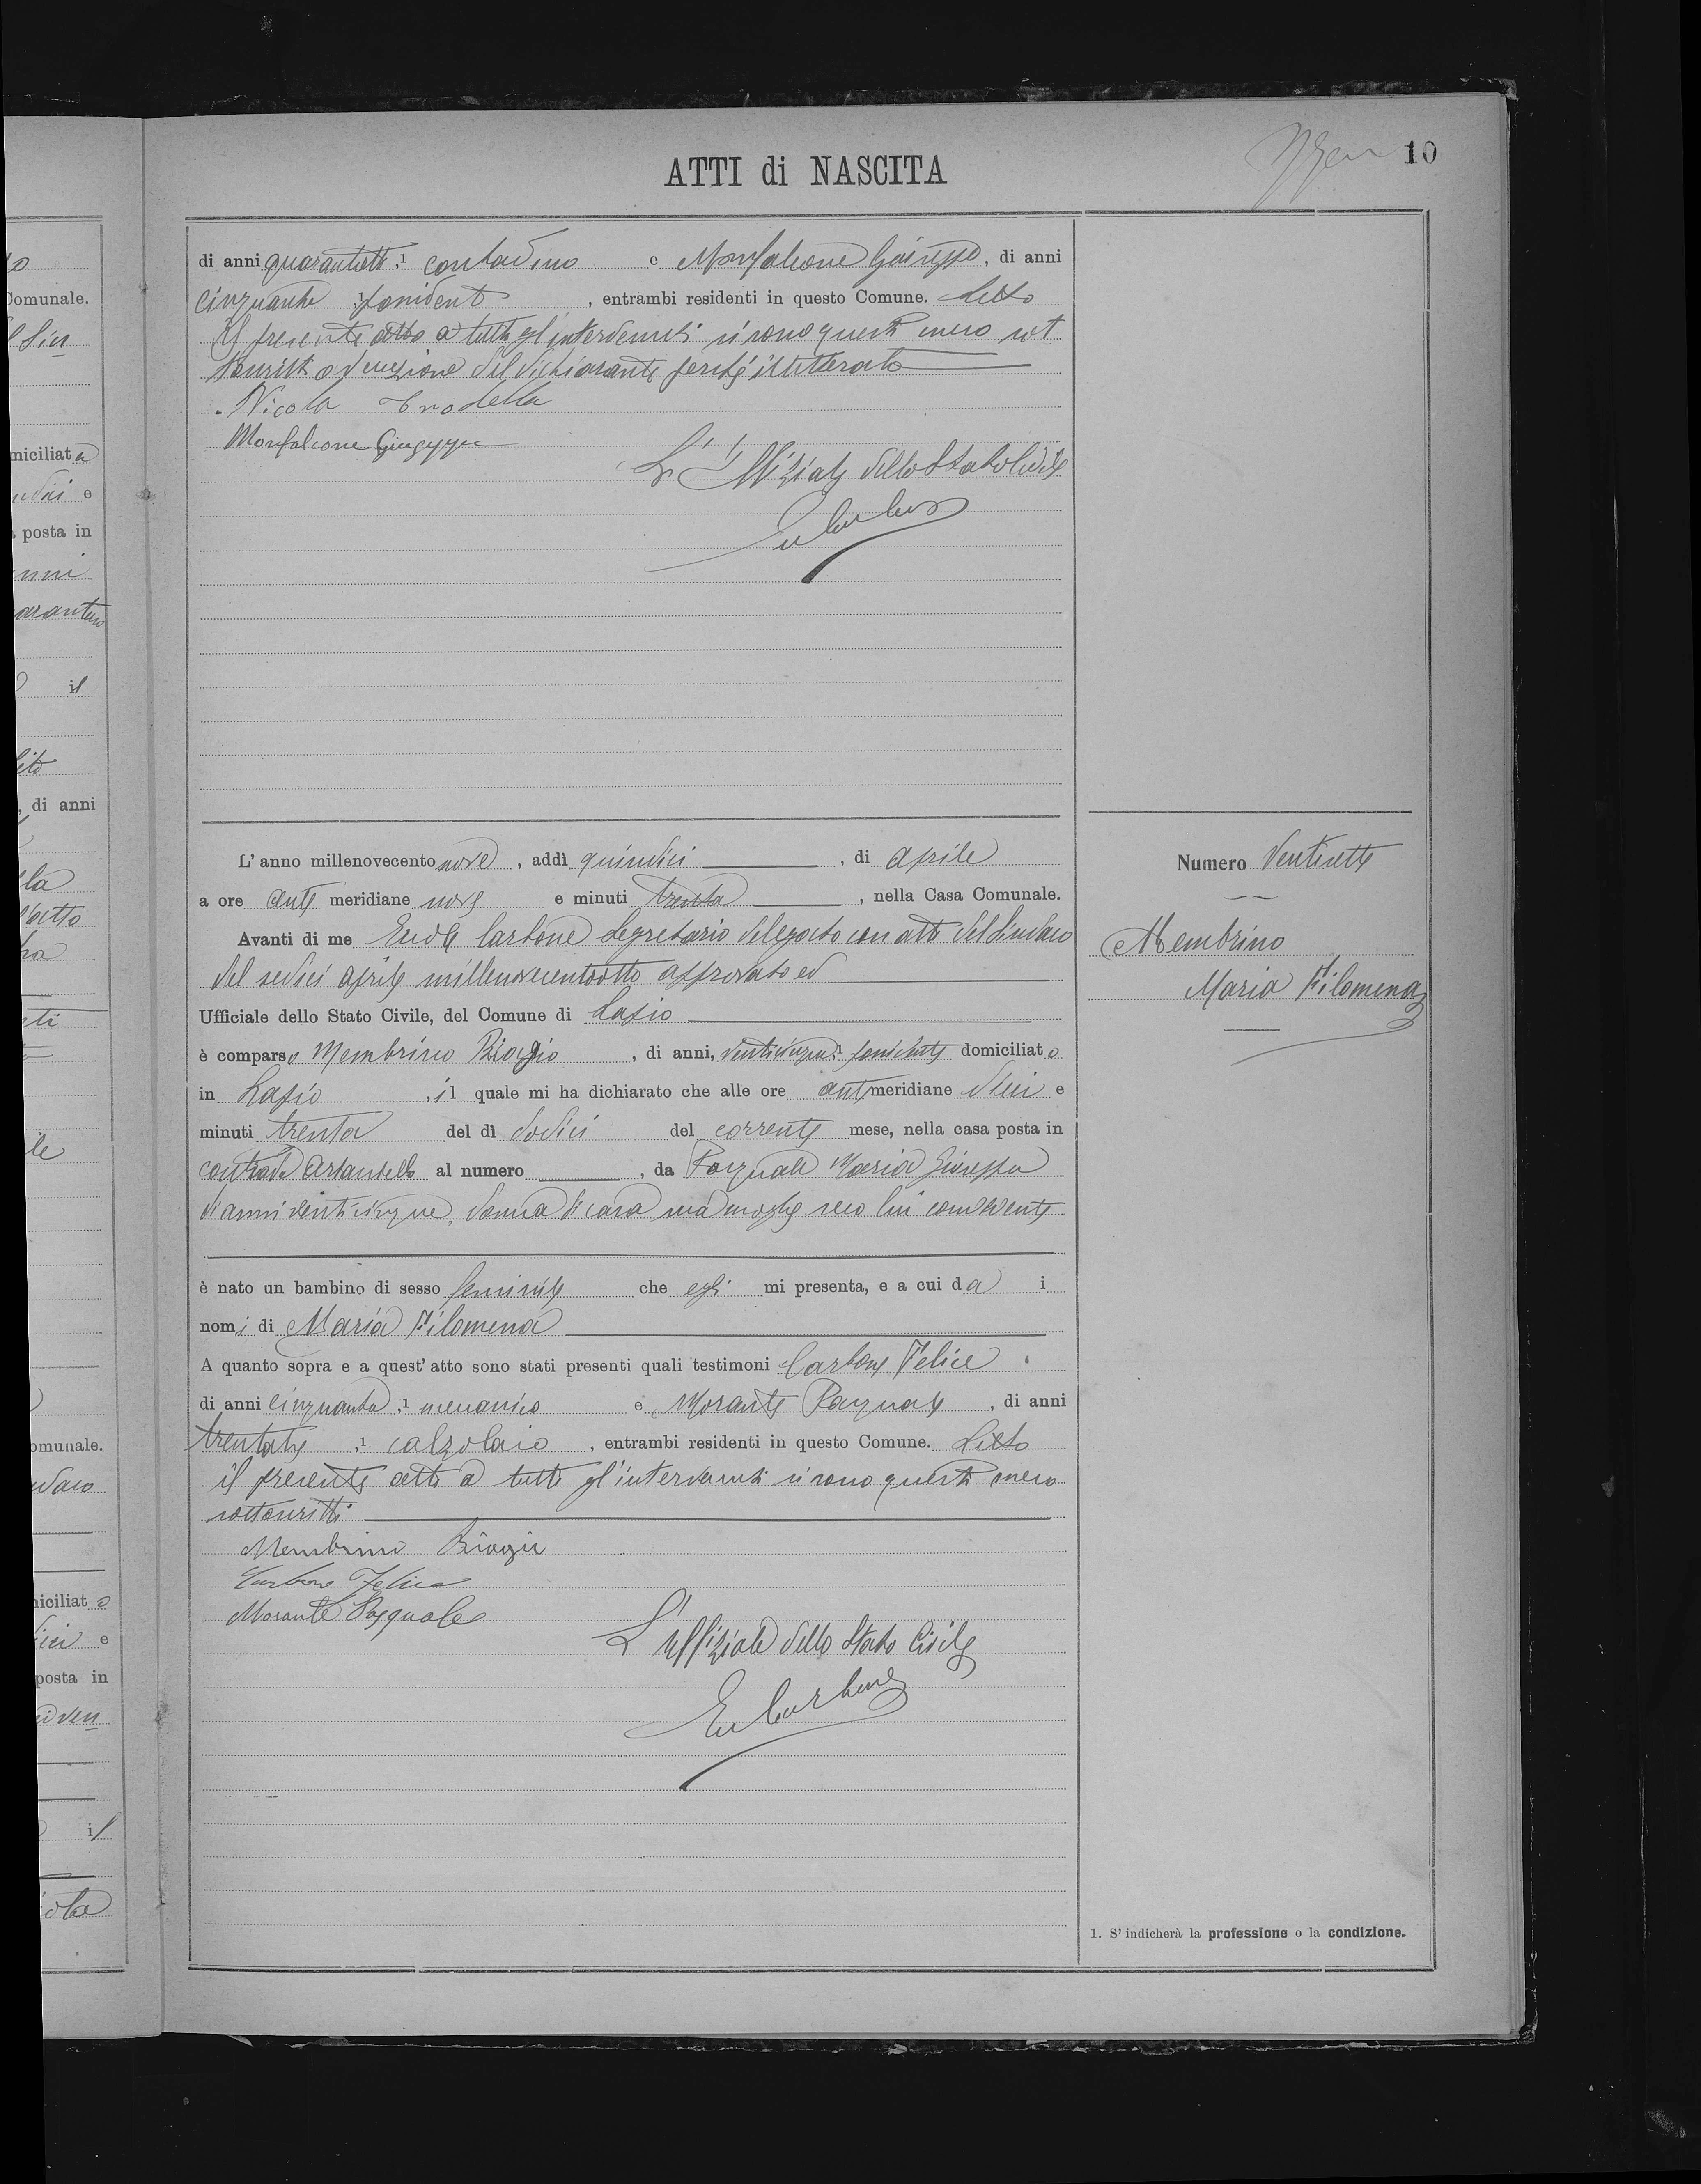 ATTI di NASCITA
10
di anni quarantotto, 1 contadino e Monfalcone Giuseppe, di anni
cinquanta, 1 possidente, entrambi residenti in questo Comune. Letto
il presente atto a tutti gl'intervenuti si sono questi meco sot
toscritti ad eccezione del dichiarante perché illetterato
Nicola
Monfalcone Giuseppe
L'Uffiziale dello Stato Civile
L'anno millenovecento nove, addì quindici, di Aprile
a ore ante meridiane nove e minuti trenta, nella Casa Comunale.
Avanti di me Carbone Segretario delegato con atto del Sindaco
del sedici aprile millenovecentootto approvato ed
Ufficiale dello Stato Civile, del Comune di Lapio
è comparso Membrino Biagio, di anni, venticinque, 1 possidente domiciliato
in Lapio, il quale mi ha dichiarato che alle ore ant meridiane dieci e
minuti trenta del dì dodici del corrente mese, nella casa posta in
contrada al numero, da Pasquale Maria Giuseppa
di anni venticinque, donna di casa sua moglie seco lui convivente
è nato un bambino di sesso feminile che egli mi presenta, e a cui da i
nomi di Maria Filomena
A quanto sopra e a quest'atto sono stati presenti quali testimoni Carbone Felice
di anni cinquanta, 1 meccanico e Morante Pasquale, di anni
trentatre, 1 calzolaio, entrambi residenti in questo Comune. Letto
il presente atto a tutti gl'intervenuti si sono questi meco
sottoscritti
Membrino Biagio
Carbone Felice
Morante Pasquale
L'uffiziale dello Stato Civile
Eu Carbone
Numero Ventisette
Membrino
Maria Filomena
1. S'indicherà la professione o la condizione.